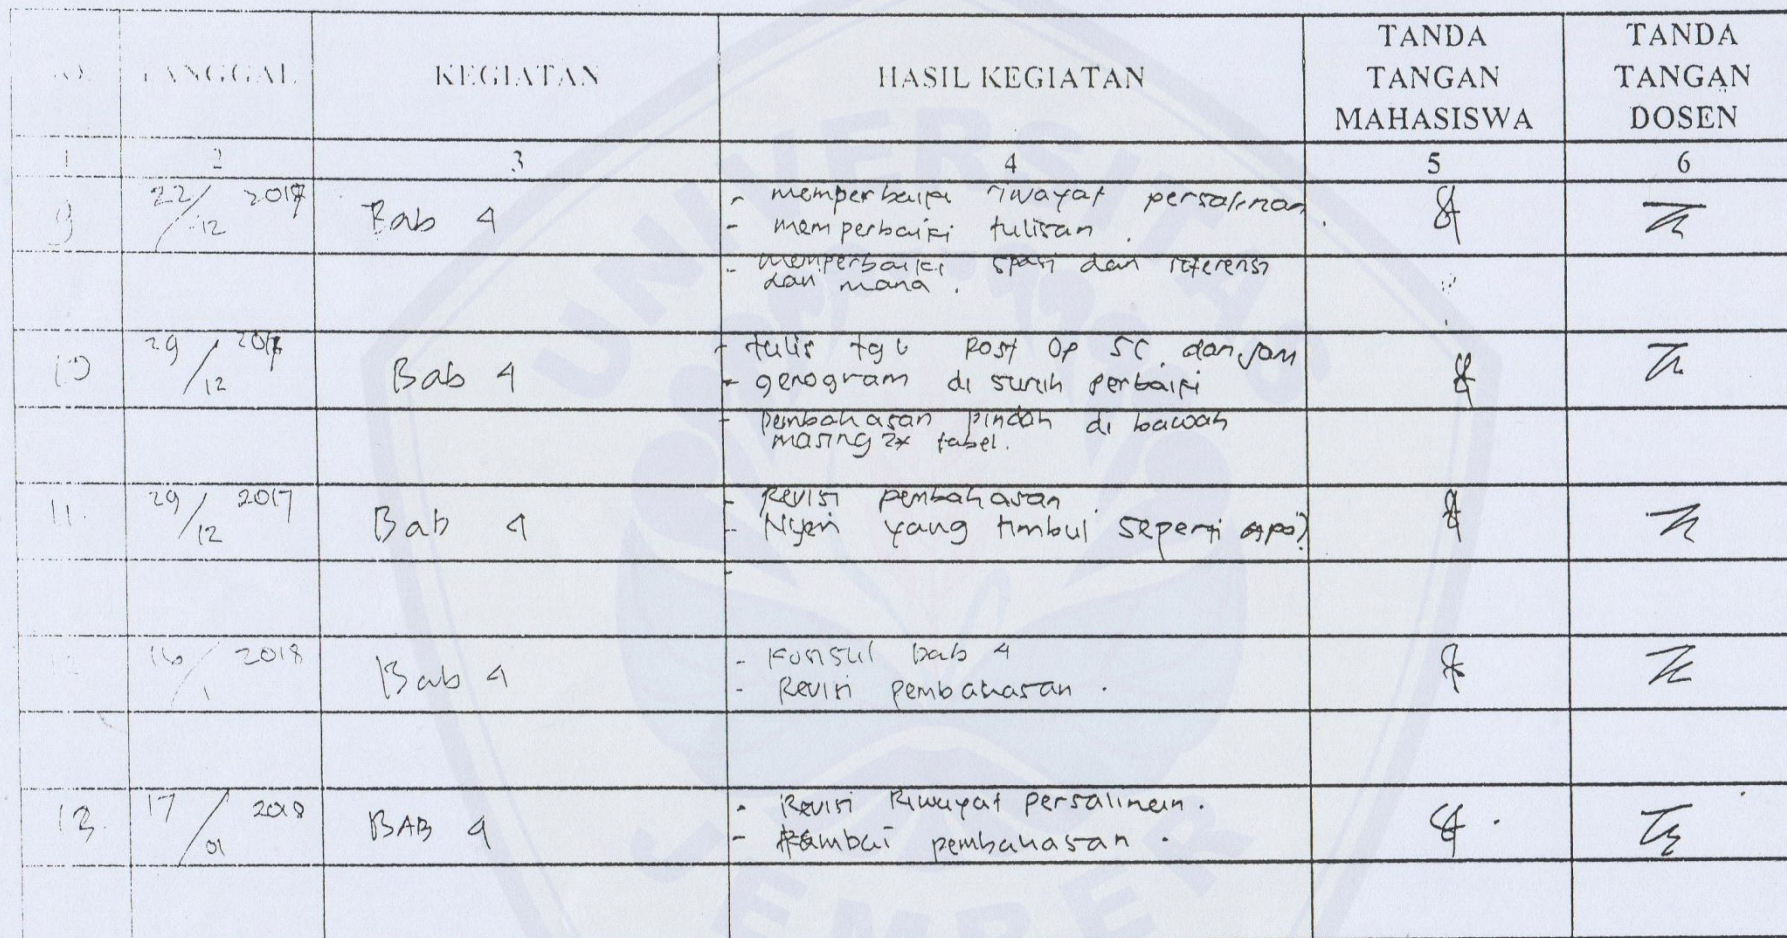 TANGGAL KEGIATAN HASIL KEGIATAN TANDA TANGAN MAHASISWA TANDA TANGAN DOSEN
1 2 3 4 5 6
9 22/12 2017 Bab 4 - memperbaiki riwayat persalinan.
- memperbaiki tulisan.
- memperbaiki spasi dan referensi
dan mana.
10 29/12 2017 Bab 4 - tulis tgl Post Op SC. dan jam
- genogram di suruh perbaiki
- pembahasan pindah di bawah
masing 2x tabel.
11. 29/12 2017 Bab 4 - Revisi pembahasan.
- Nyeri yang timbul seperti apa?
-
16/1 2018 Bab 4 - Konsul bab 4
- Revisi pembahasan.
13. 17/01 2018 BAB 4 - Revisi Riwayat persalinan.
- pembahasan.
UNIVERSITAS
JEMBER